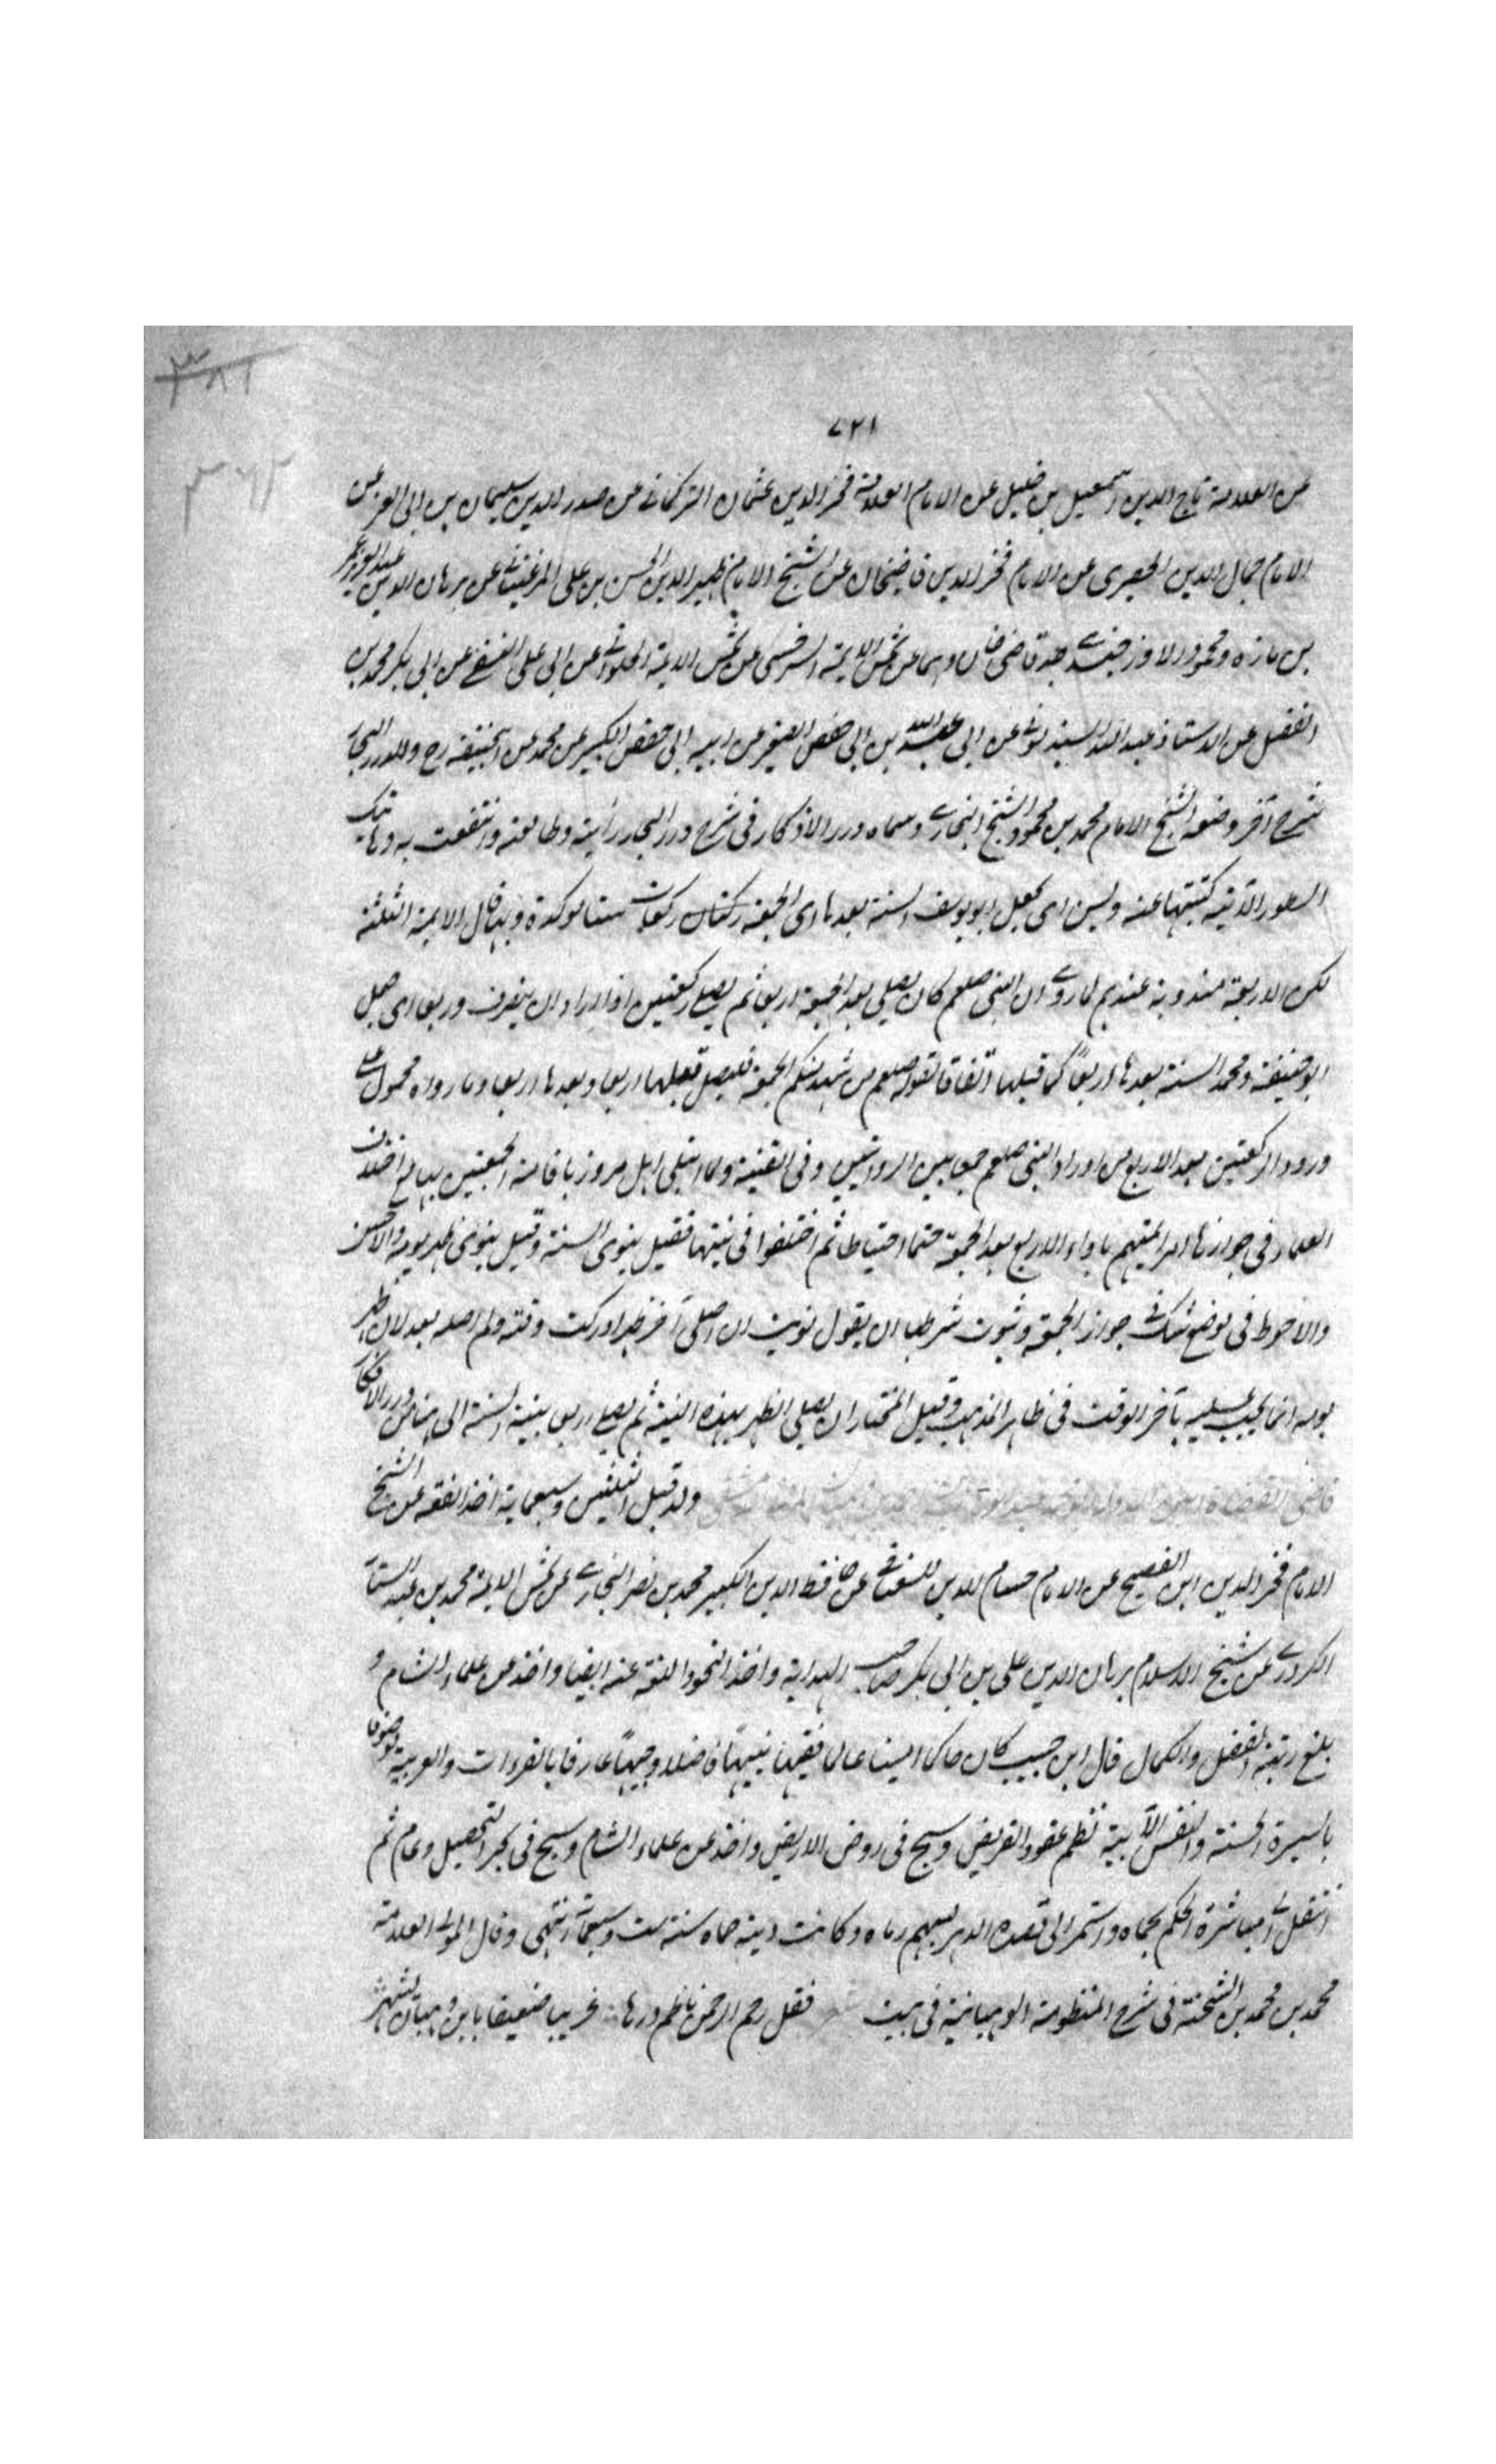 ٧٢١
عن العلامة تاج الدين اسمعيل بن خليل عن الامام العلامة فخر الدين عثمان التركمانى عن صدر الدين سليمان بن ابى العز عن
الامام جمال الدين الحصيرى عن الامام فخر الدين قاضيخان عن الشيخ الامام ظهير الدين الحسن بن على المرغينانى عن برهان الدين عبد العزيز بن عمر
بن مازه ومحمود الاوزجندى جد قاضى خان وهما عن شمس الايمة السرخسى عن شمس الايمة الحلوانى عن ابى على النسفى عن ابى بكر محمد بن
الفضل عن الاستاذ عبد الله السبذمونى عن ابى عبد الله بن ابى حفص الصغير عن ابيه ابى حفص الكبير عن محمد عن ابيحنيفة رح ولدرر البحار
شرح آخر وضعه الشيخ الامام محمد بن محمود الشيخ البخارى وسماه درر الاذكار فى شرح درر البحار رأيته وطالعته وانتفعت به وهاتيك
السطور الآتية كتبتها عنه وليس اى يجعل ابو يوسف السنة بعدها اى الجمعة ركعتان ركعات ستا موكدة وبها قال الايمة الثلثة
لكن الاربعة مندوبة عندهم لما روى ان النبى صلعم كان يصلى بعد الجمعة اربعا ثم يصلى ركعتين اذا اراد ان ينصرف وربعا اى جعل
ابو حنيفة ومحمد السنة بعدها اربعاً كما قبلها اتفاقا لقوله صلعم من شهد منكم الجمعة فليصل قبلها اربعا وبعدها اربعا وما رواه محمول على
ورود الركعتين بعد الاربع من اوراد النبى صلعم جمعا بين الروايتين وفى القنية ولما ابتلى اهل مرو باقامة الجمعتين بها مع اختلاف
العلماء فى جوازها امر ايمتهم باداء الاربع بعد الجمعة حتما احتياطا ثم اختلفوا فى نيتها فقيل ينوى السنة وقيل ينوى ظهر يومه والاحسن
والاحوط فى موضع شك فى جواز الجمعة وثبوت شرطها ان يقول نويت ان اصلى آخر ظهر ادركت وقته ولم اصله بعد لان ظهر
يومه انما يجب عليه بآخر الوقت فى ظاهر المذهب وقيل المختار ان يصلى الظهر بهذه النية ثم يصلى اربعا بنية السنة الى هنا من درر الاذكار
قاضى القضاة امين الدولة ولد قبل الثلثين وسبعماية اخذ الفقه عن الشيخ
الامام فخر الدين ابن الفصيح عن الامام حسام الدين السغناقى عن حافظ الدين الكبير محمد بن نصر البخارى عن شمس الايمة محمد بن عبد الستار
الكردرى عن شيخ الاسلام برهان الدين على بن ابى بكر صاحب الهداية واخذ النحو واللغة عنه ايضا واخذ عن علماء الشام و
بلغ رتبة الفضل والكمال قال ابن حبيب كان حاكما امينا عالما فقيها نبيهاً فاضلا وجيهاً عارفا بالقراءات والعربية موصوفا
بالسيرة الحسنة والنفس الآبية نظم عقود القريض وسبح فى روض الاريض واخذ عن علماء الشام وسبح فى بحر التحصيل وعام ثم
انتقل الى مباشرة الحكم بحماه واستمر الى ان قصده الدهر بسهم رماه وكانت دينه حماه سنة ست وسبعماية انتهى وقال المولى العلامة
محمد بن محمد بن الشحنة فى شرح المنظومة الوهبانية فى بيت فقل رحم الرحمن ناظم درها غريبا ضعيفا بابن وهبان يشهر